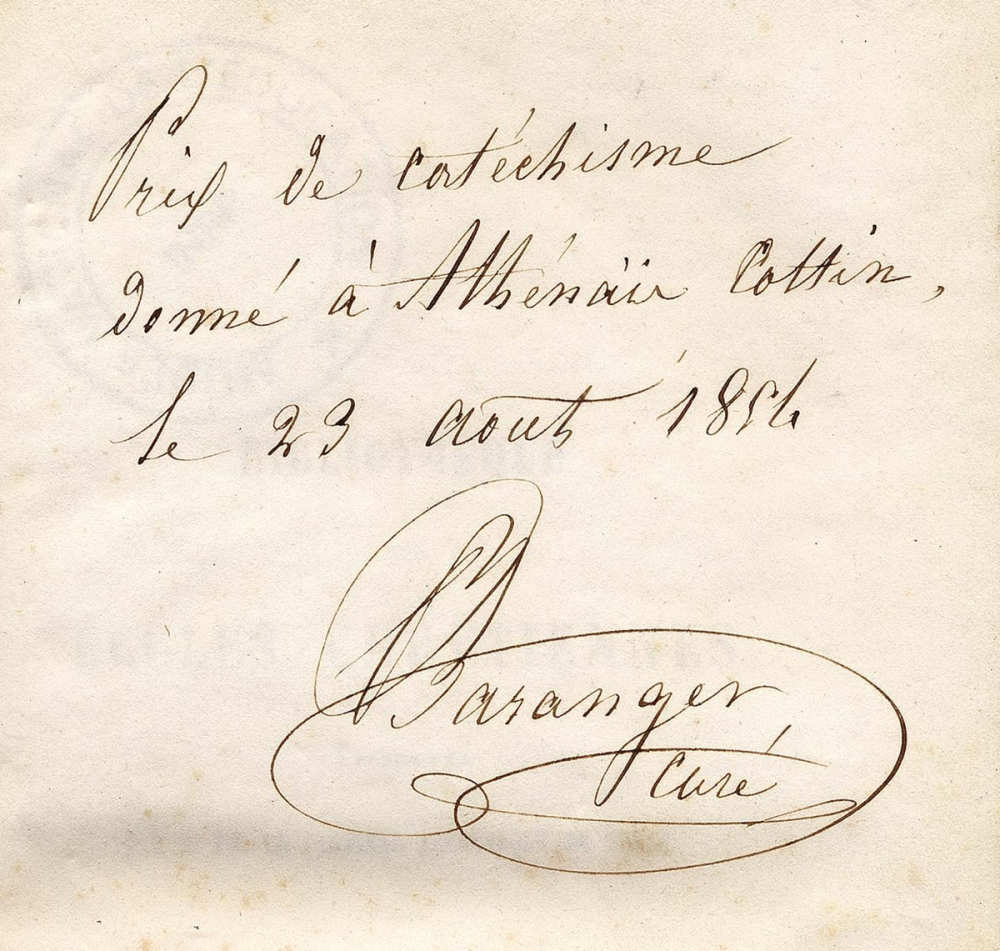 Prix de catéchisme
donné à Athénaïs Cottin,
le 23 août 1854
Baranger
Curé